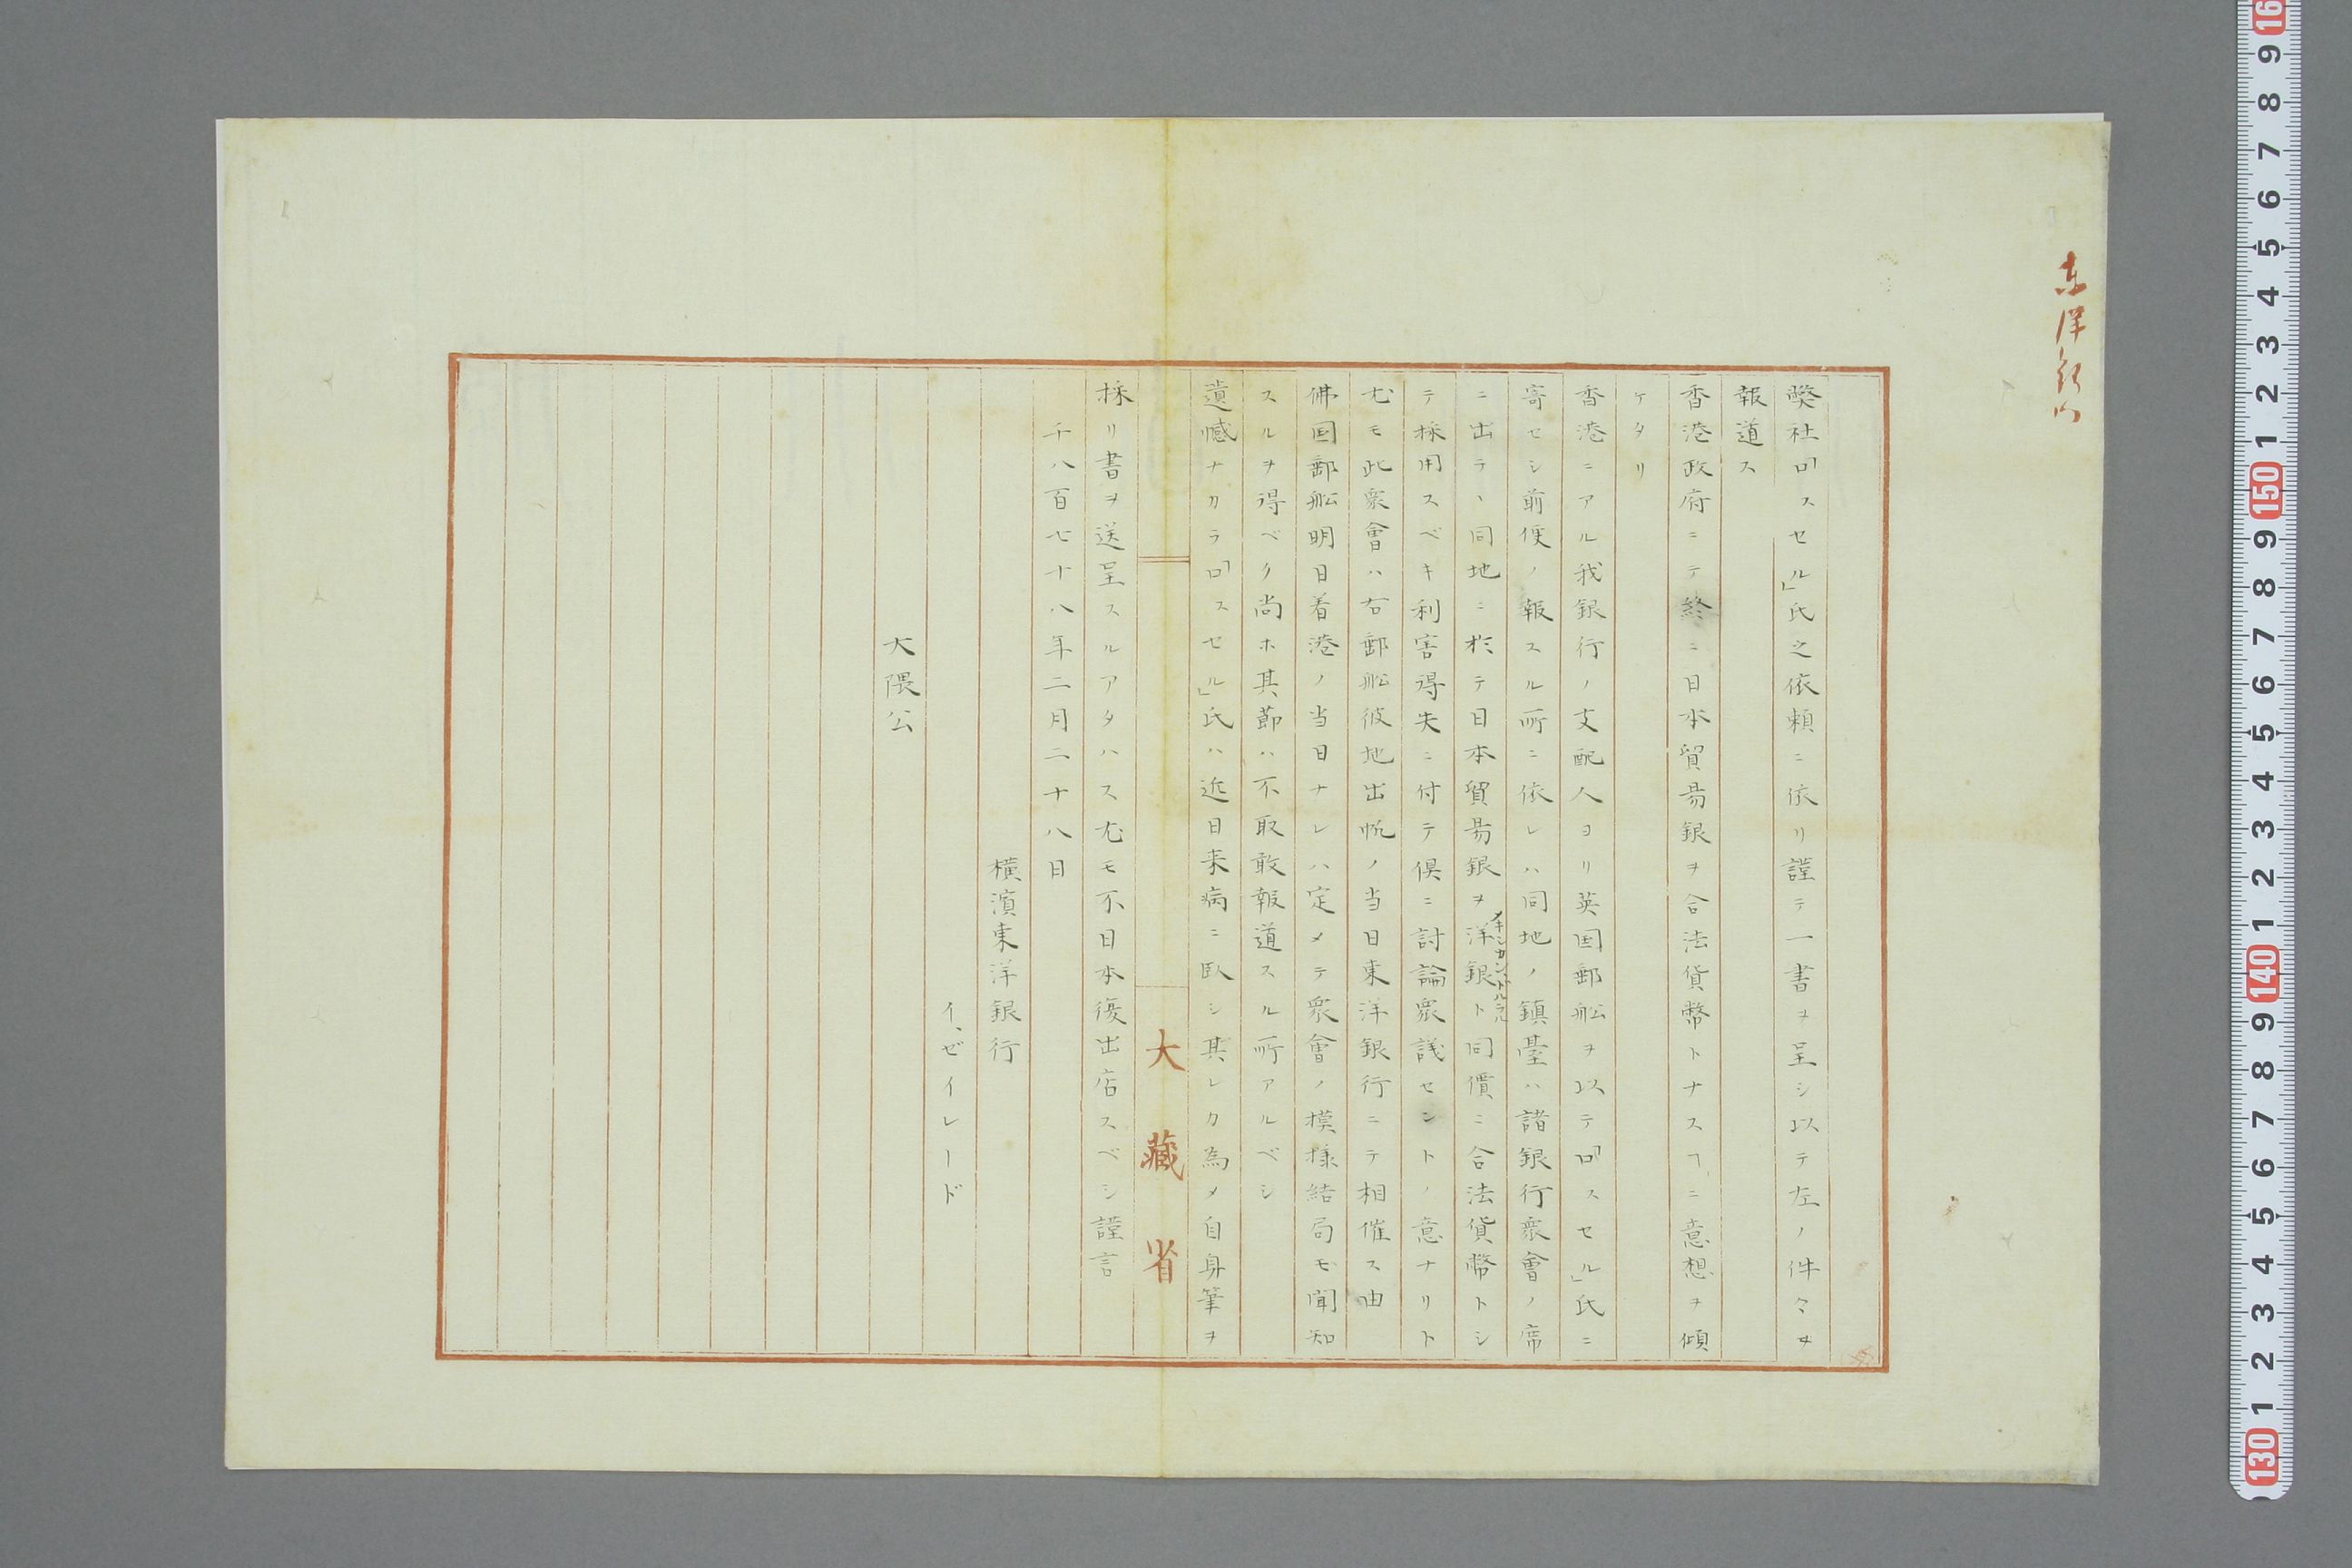 東洋銀行
弊社「ロスセル」氏之依頼ニ依リ謹テ一書ヲ呈シ以テ左ノ件々ヲ
報道ス
香港政府ニテ終ニ日本貿易銀ヲ合法貨幣トナスヿニ意想ヲ傾
ケタリ
香港ニアル我銀行ノ支配人ヨリ英国郵舩ヲ以テ「ロスセル」氏ニ
寄セシ前便ノ報スル所ニ依レハ同地ノ鎮臺ハ諸銀行衆會ノ席
ニ出テ、同地ニ於テ日本貿易銀ヲ洋銀ト同價ニ合法貨幣トシ
メキシカンドルラル
テ採用スベキ利害得失ニ付テ倶ニ討論衆議セントノ意ナリト
尤モ此衆會ハ右郵舩彼地出帆ノ当日東洋銀行ニテ相催ス由
佛国郵舩明日着港ノ当日ナレハ定メテ衆會ノ模様結局モ聞知
スルヲ得ベク尚ホ其節ハ不取敢報道スル所アルベシ
遺憾ナカラ「ロスセル」氏ハ近日来病ニ臥シ其レカ為メ自身筆ヲ
大藏省
採リ書ヲ送呈スルアタハス尤モ不日本復出店スベシ謹言
千八百七十八年二月二十八日
横濱東洋銀行
イ、ゼイレード
大隈公
130 1 2 3 4 5 6 7 8 9 140 1 2 3 4 5 6 7 8 9 150 1 2 3 4 5 6 7 8 9 16